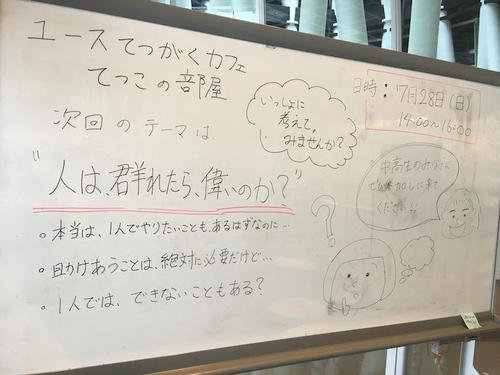 ユースてつがくカフェ
てつこの部屋
次回のテーマは
"人は、群れたら、偉いのか?"
。本当は、1人でやりたいことも、あるはずなのに…
。助けあうことは、絶対に必要だけど…
。1人では、できないこともある?
いっしょに
考えて。
みませんか?
日時:7月28日(日)
14:00~16:00
中高生のみなさん
ぜひ参加しに来て
ください!!
?